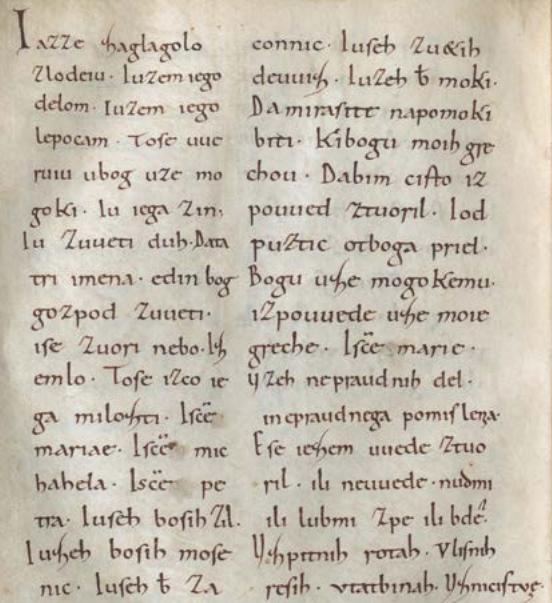 Iazze zaglagolo
zlodeiu. Iuzem iego
delom. Iuzem iego
lepocam. Tose uue
ruiu ubog uze mo
goki. Iu iega zin,
Iu zuueti duh. Data
tri imena. edin bog
gozpod zuueti.
ise zuori nebo. Iz
emlo. Tose izco ie
ga milozti. Iscē
mariae. Iscē mic
hahela. Iscē pe
tra. Iuseh bosih zil.
Iuzeh bosih mose
nic. Iuseh b̄ za
connic. Iuseh zu&ih
deuuiz. Iuzeh b̄ moki.
Da mirasite napomoki
biti. Kibogu moih gre
chou. Dabim cisto iz
pouued ztuoril. Iod
puztic otboga priel.
Bogu uze mogokemu.
izpouuede uze moie
greche. Iscē marie.
Uzeh nepraudnih del.
inepraudnega pomislena.
Ese iezem uuede ztuo
ril. ili neuuede. nudmi
ili lubmi zpe ili bde.
Uzpitnih rotah. Vlisnih
resih. vtatbinah. Uznicistoge